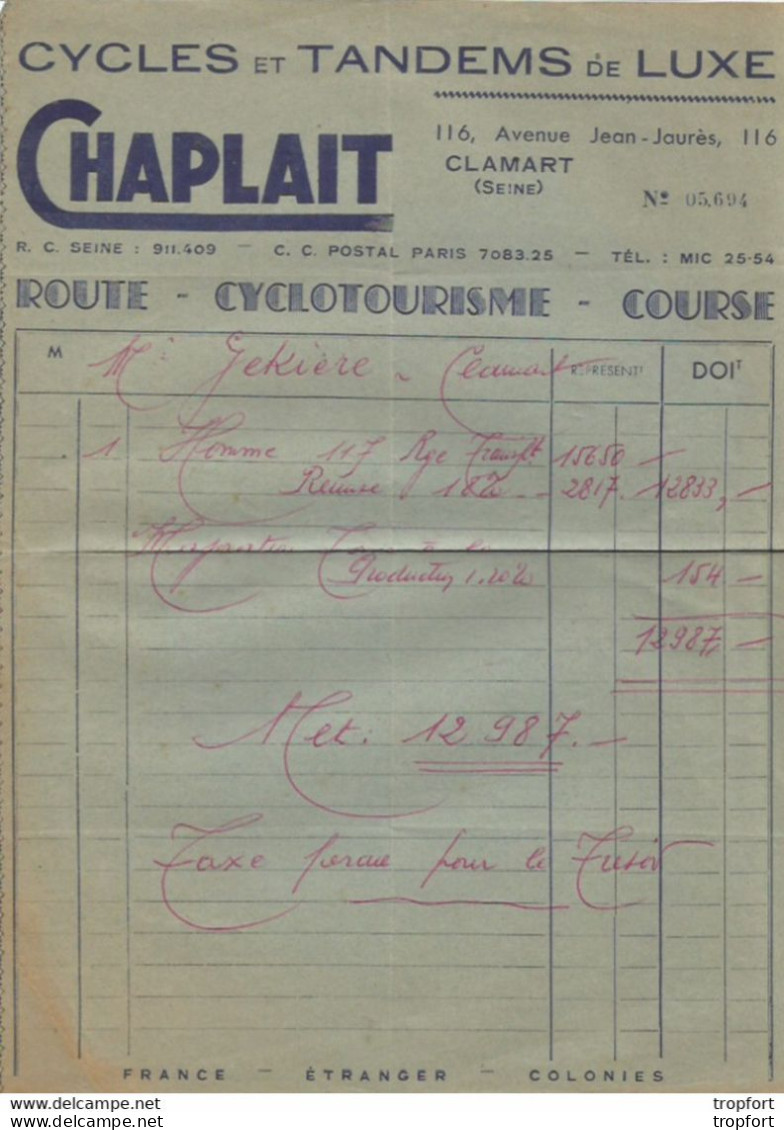 CYCLES ET TANDEMS DE LUXE
CHAPLAIT
116, Avenue Jean-Jaurès, 116
CLAMART
(SEINE)
Nº 05,694
R. C. SEINE : 911.409 — C. C. POSTAL PARIS 7083.25 — TÉL. : MIC 25-54
ROUTE - CYCLOTOURISME - COURSE
M Mr Gekière - Clamart REPRÉSENTT DOIT
1 Homme 117 Rge 15650 —
Remise 18% - 2817. 12833, —
Majoration
Production 1.20% 154 —
12987, —
Net : 12 987. —
Taxe perçue pour le Trésor
FRANCE — ÉTRANGER — COLONIES
www.tropfort.com
tropfort